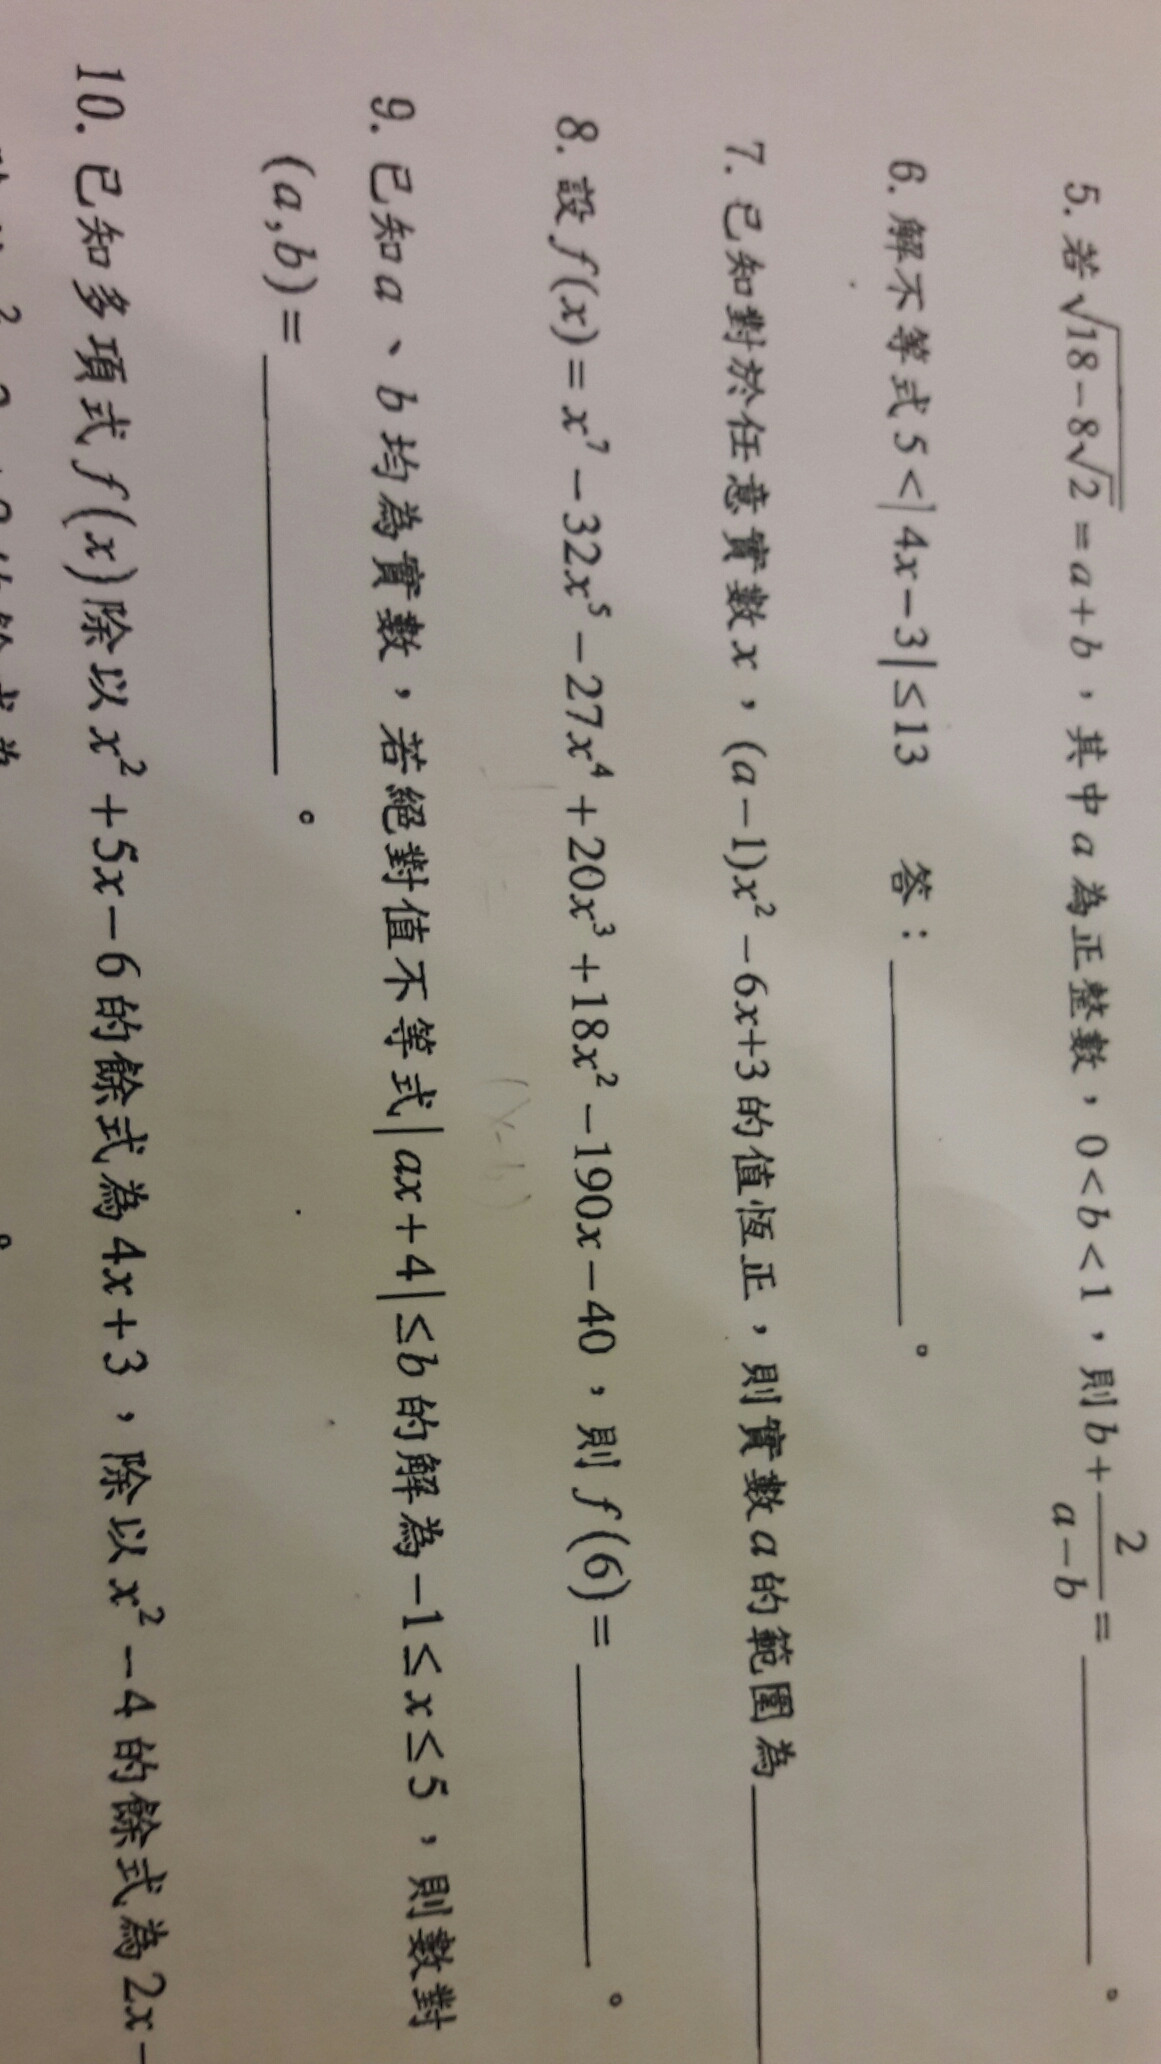 5. 若√(18-8√2) = a+b，其中 a 為正整數，0<b<1，則 b+2/(a-b)=______。
6. 解不等式 5<|4x-3|≤13 答：______。
7. 已知對於任意實數 x，(a-1)x²-6x+3 的值恆正，則實數 a 的範圍為______
8. 設 f(x)=x⁷-32x⁵-27x⁴+20x³+18x²-190x-40，則 f(6)=______。
9. 已知 a、b 均為實數，若絕對值不等式 |ax+4|≤b 的解為 -1≤x≤5，則數對
(a,b)=______。
10. 已知多項式 f(x) 除以 x²+5x-6 的餘式為 4x+3，除以 x²-4 的餘式為 2x-